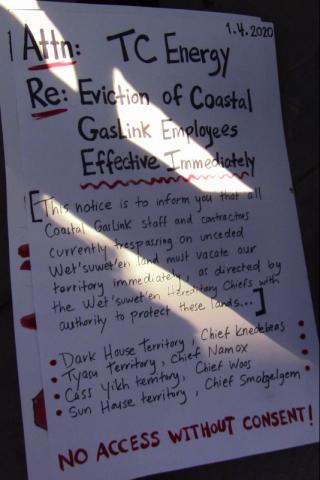 1.4.2020
Attn: TC Energy
Re: Eviction of Coastal
GasLink Employees
Effective Immediately
[This notice is to inform you that all
Coastal GasLink staff and contractors
currently trespassing on unceded
Wet'suwet'en land must vacate our
territory immediately, as directed by
the Wet'suwet'en Hereditary Chiefs with
authority to protect these lands...]
• Dark House Territory, Chief Knedebeas
• Tyasu Territory, Chief Namox
• Cass Yikh territory, Chief Woos
• Sun House territory, Chief Smogelgem
NO ACCESS WITHOUT CONSENT!